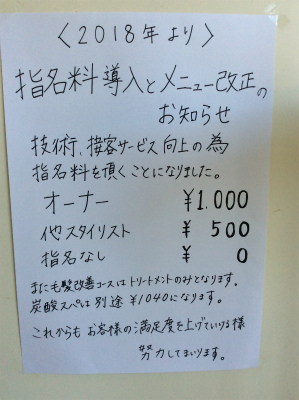 〈2018年より〉
指名料導入とメニュー改正の
お知らせ
技術、接客サービス向上の為
指名料を頂くことになりました。
オーナー ¥1.000
他スタイリスト ¥ 500
指名なし ¥ 0
またモ髪改善コースはトリートメントのみとなります。
炭酸スパは別途¥1040になります。
これからもお客様の満足度を上げていける様
努力してまいります。